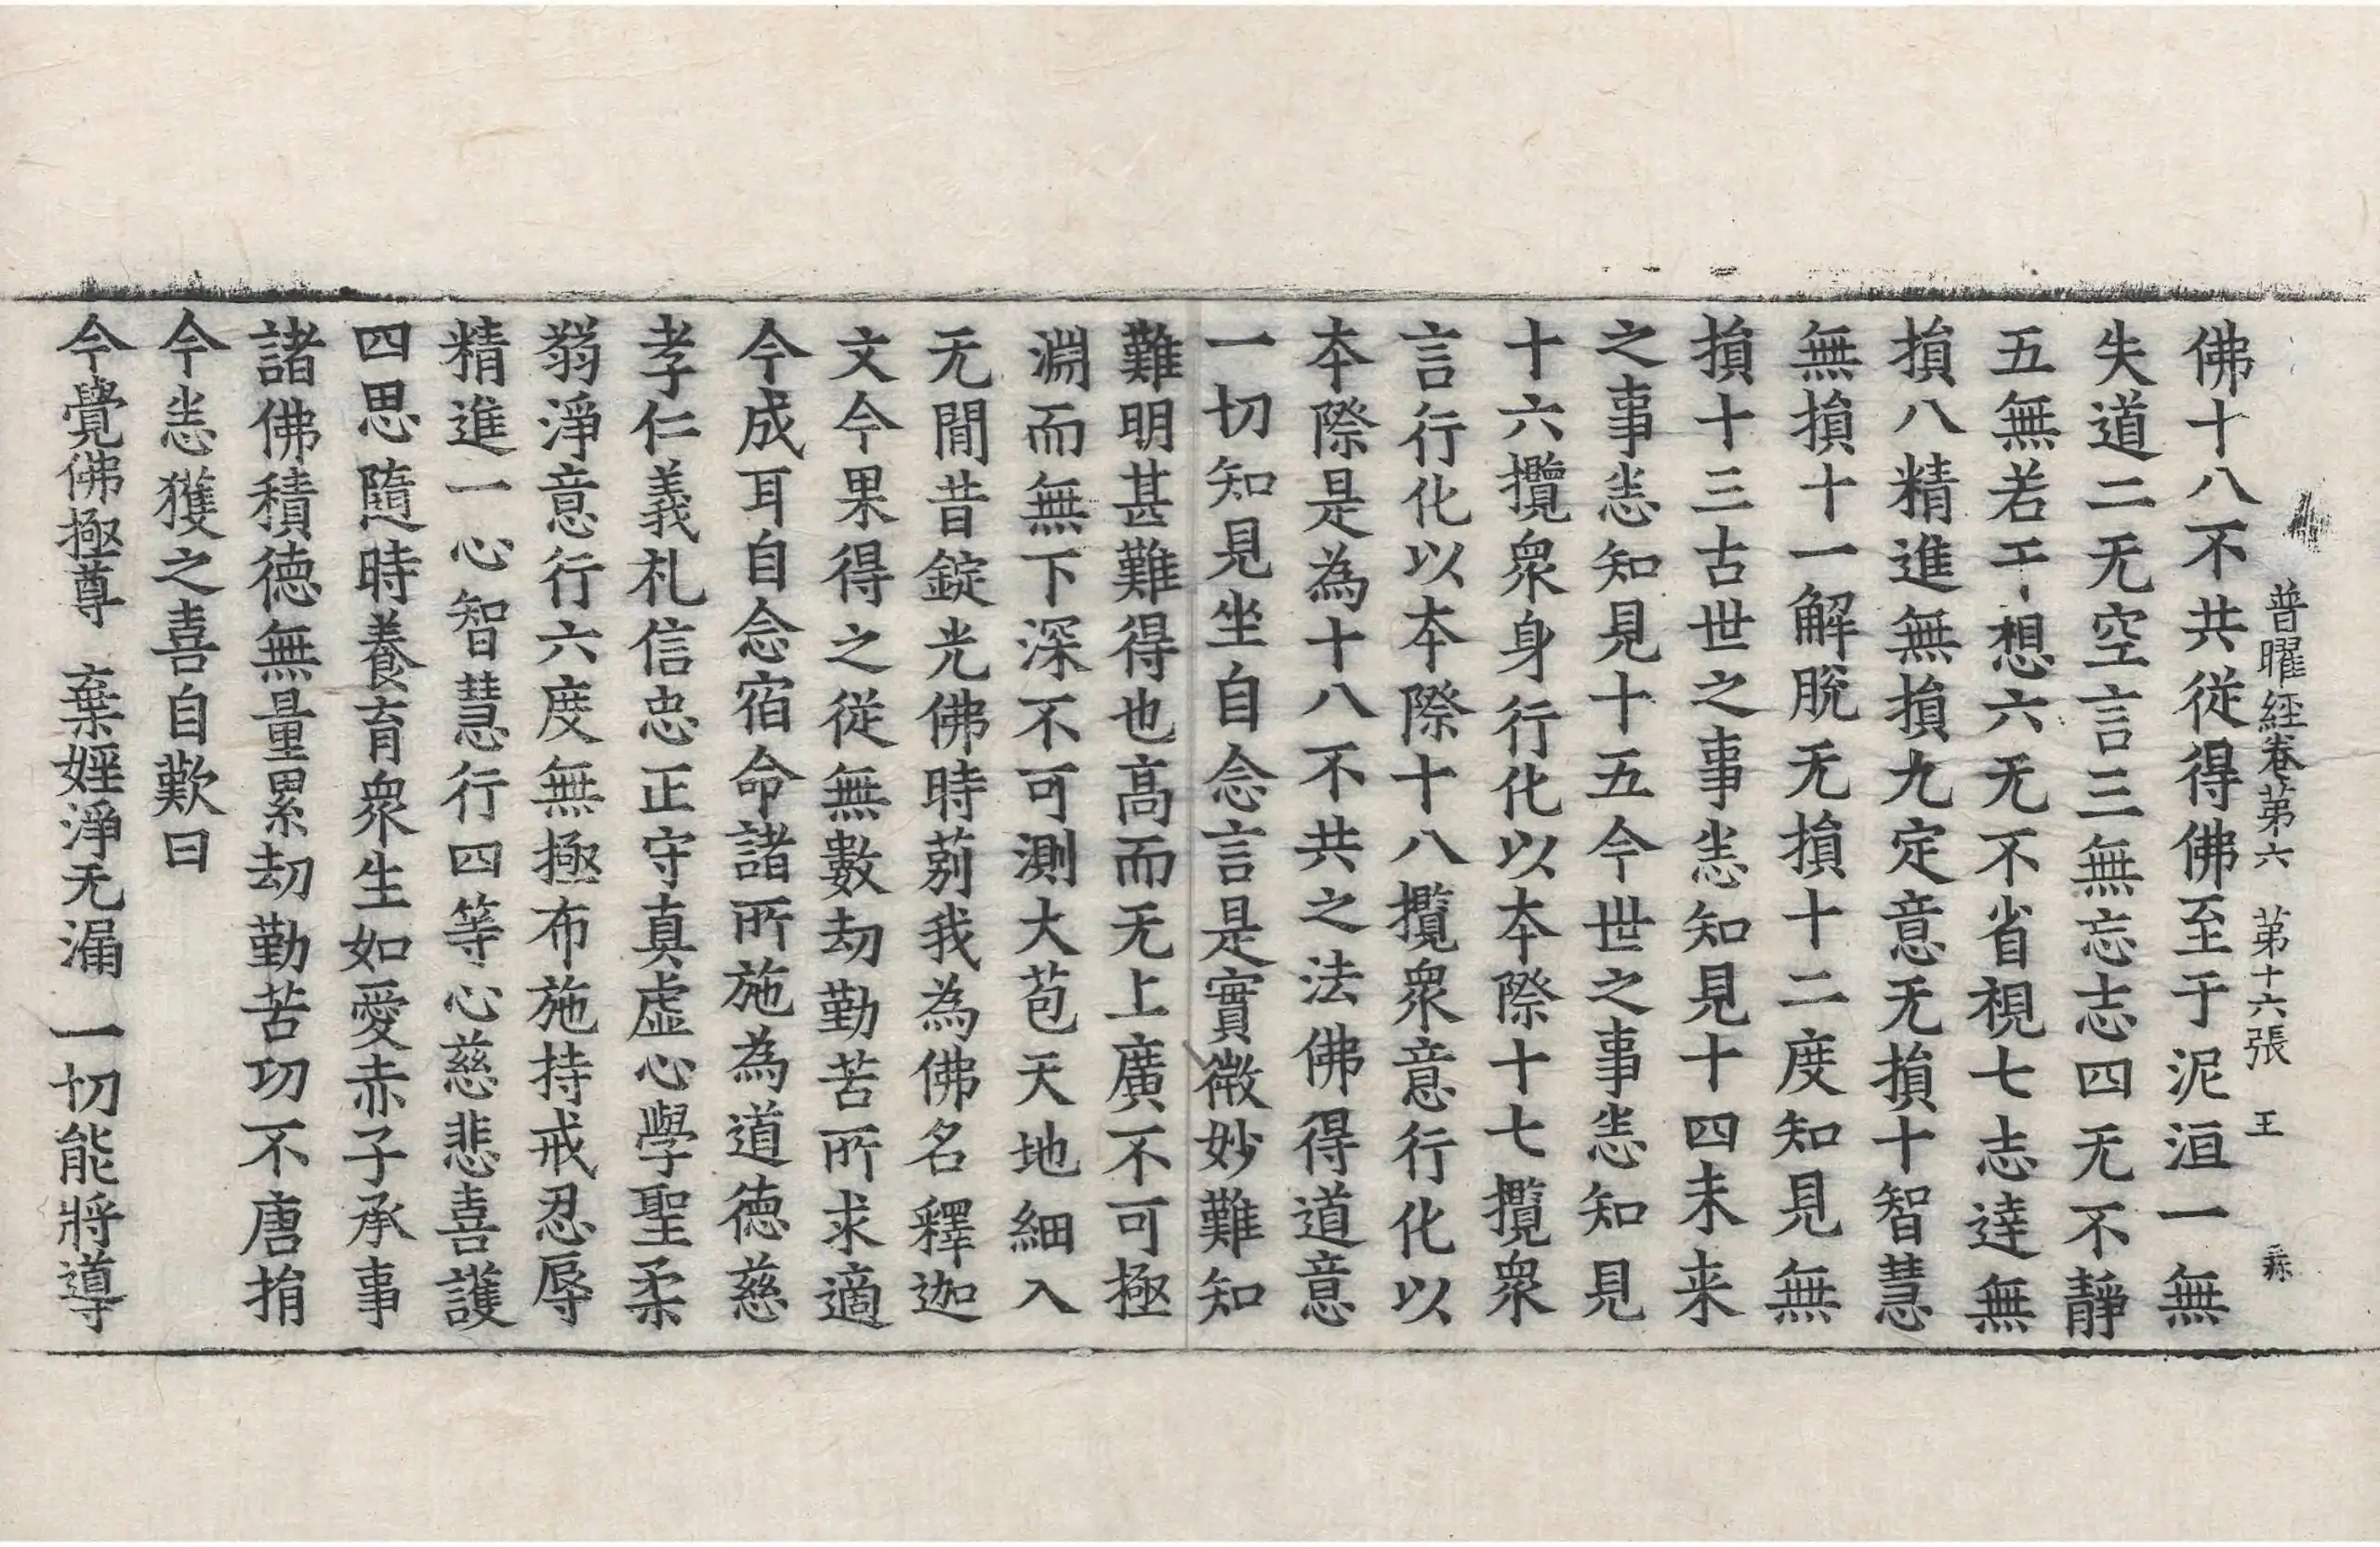 普曜經卷苐六　苐十六張　王
佛十八不共從得佛至于泥洹一無
失道二无空言三無忘志四无不靜
五無若干想六无不省視七志逹無
損八精進無損九定意无損十智慧
無損十一解脫无損十二度知見無
損十三古世之事悉知見十四未来
之事悉知見十五今世之事悉知見
十六攬衆身行化以本際十七攬衆
言行化以本際十八攬衆意行化以
本際是為十八不共之法佛得道意
一切知見坐自念言是實微妙難知
難明甚難得也高而无上廣不可極
淵而無下深不可測大苞天地細入
无閒昔錠光佛時莂我為佛名釋迦
文今果得之從無數劫勤苦所求適
今成耳自念宿命諸所施為道德慈
孝仁義礼信忠正守真虛心學聖柔
弱淨意行六度無極布施持戒忍辱
精進一心智慧行四等心慈悲喜護
四思隨時養育衆生如愛赤子承事
諸佛積德無量累劫勤苦功不唐捐
今悉獲之喜自歎曰
今覺佛極尊　棄婬淨无漏　一切能將導